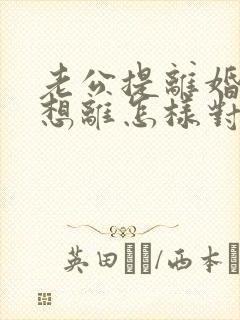 老公提離婚
想離怎樣對
英田/西本